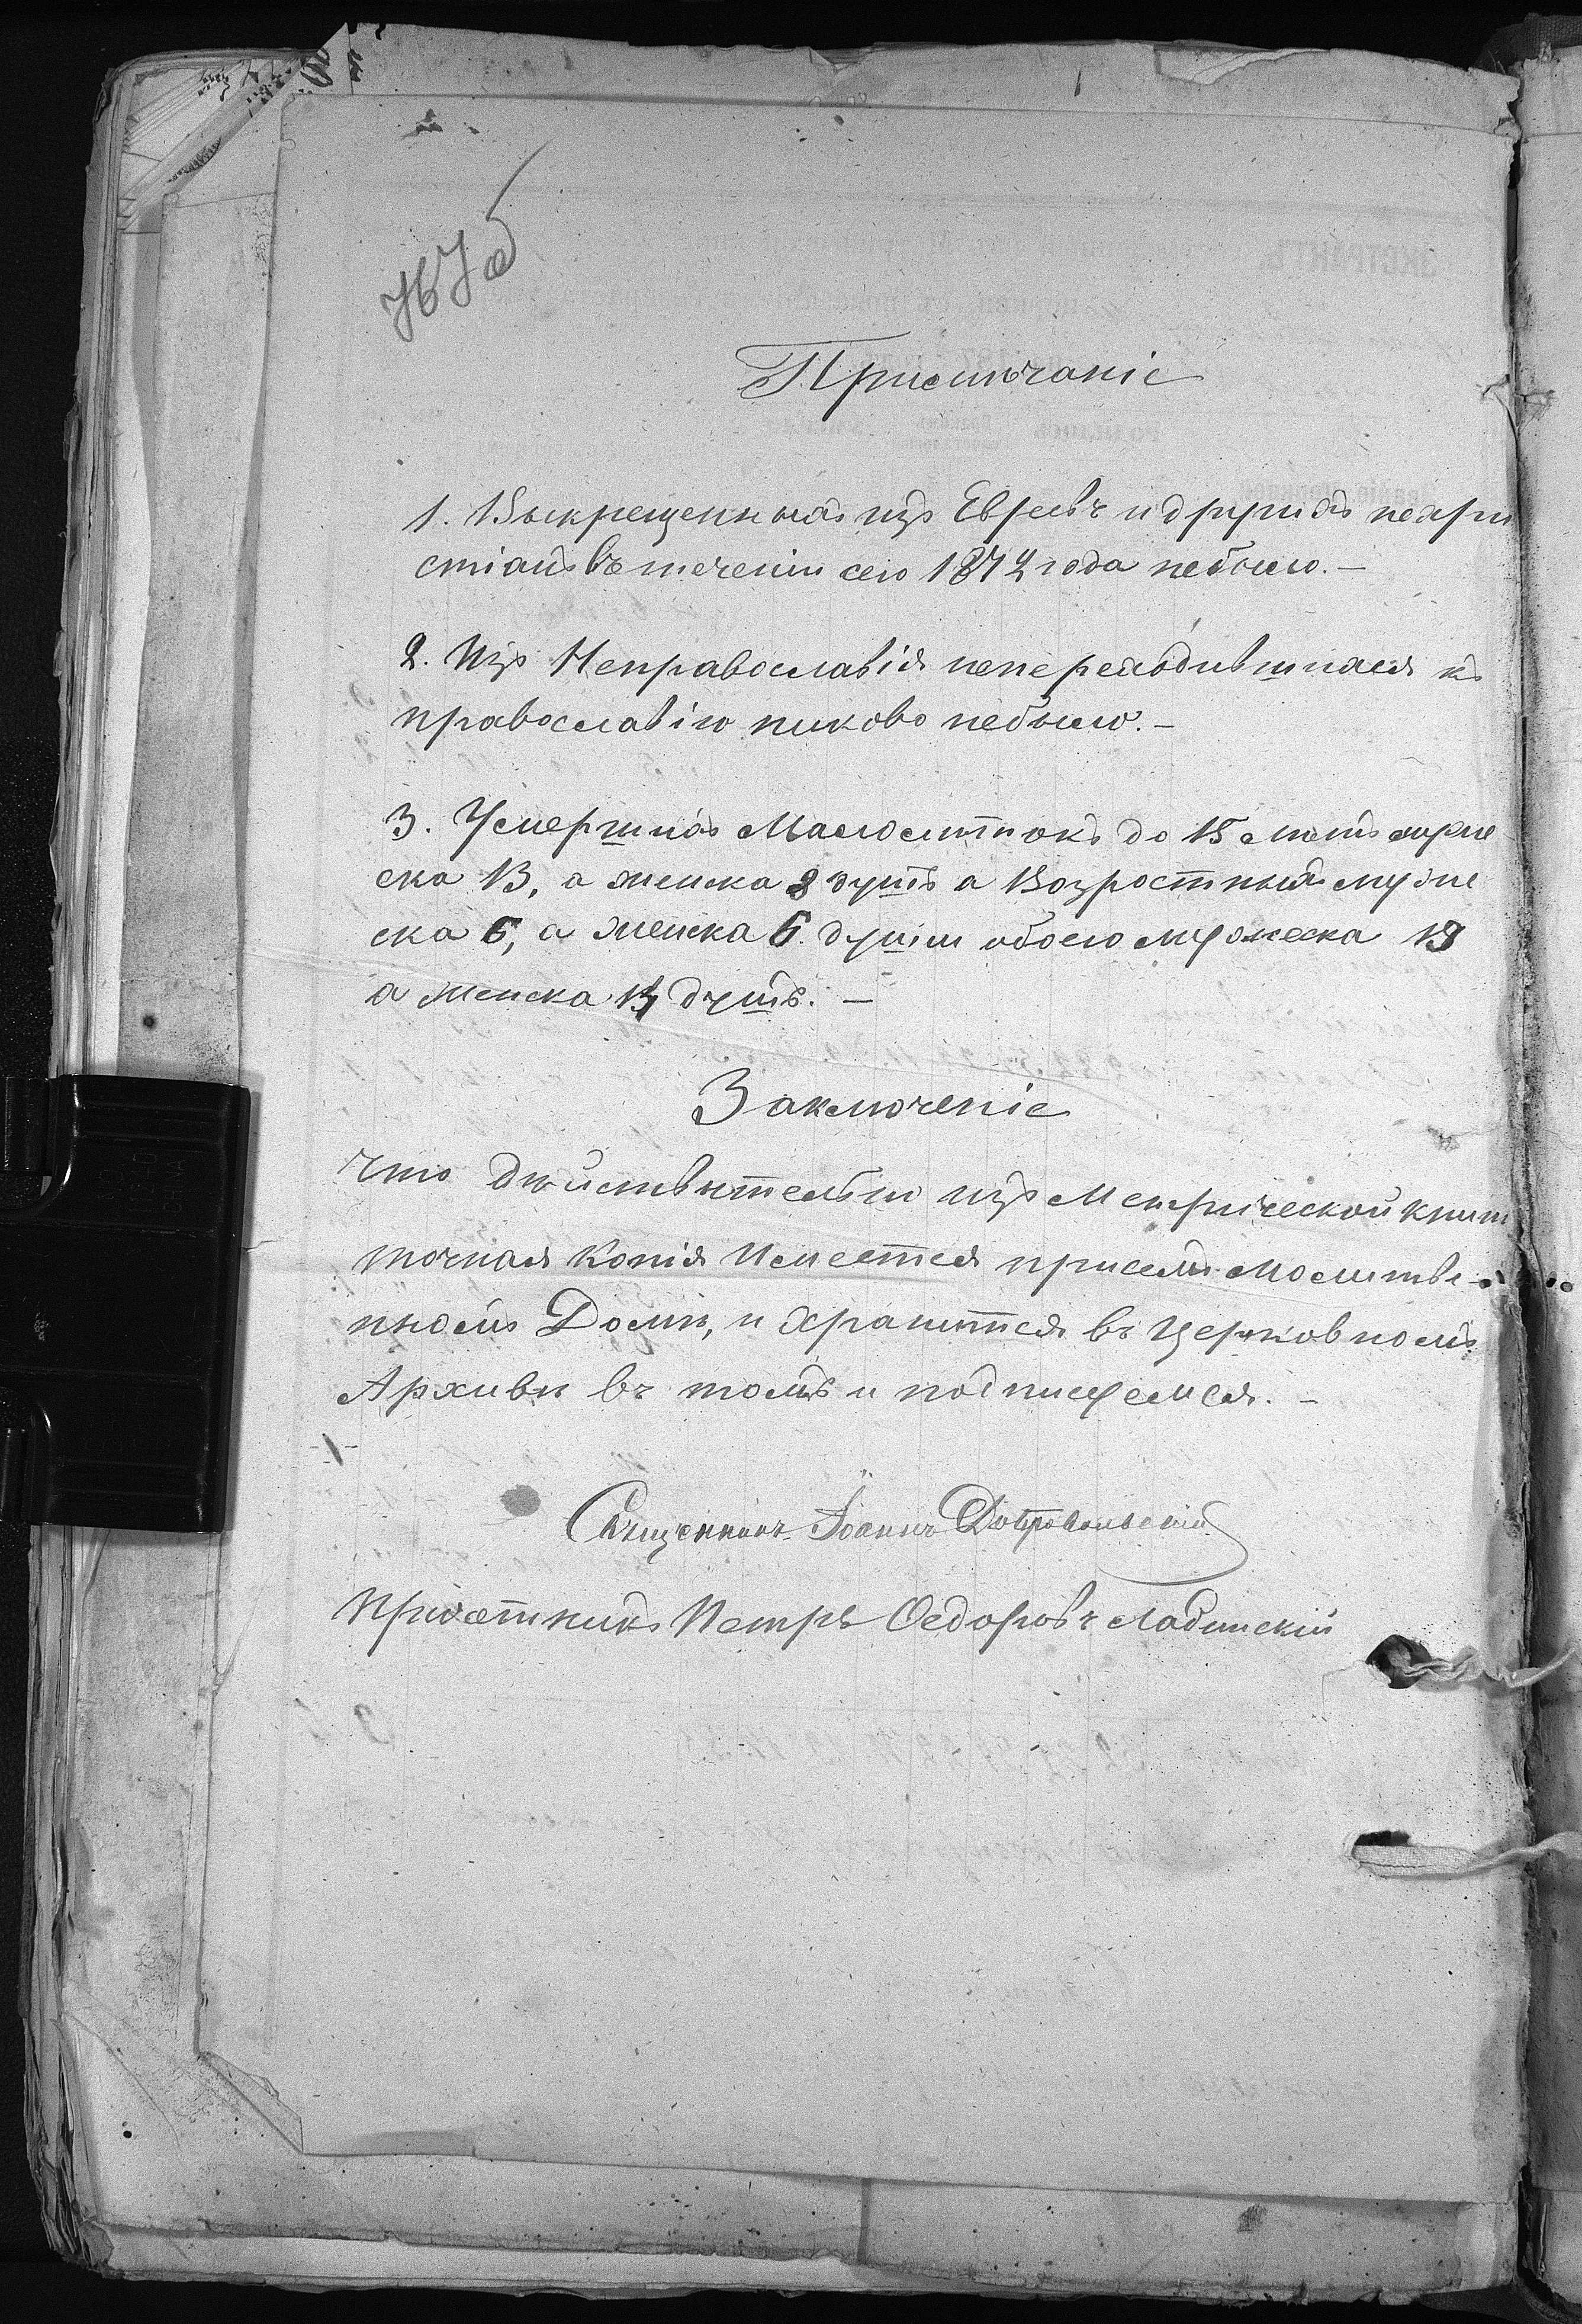 Примѣчаніе
1. Выкрещенныхъ изъ Евреевъ и другихъ нехри
стіанъ въ теченіи сего 1874 года небыло. —
2. Изъ Неправославія непереходившихся къ
православію никово небыло. —
3. Умершихъ Малолѣтнокъ до 15 лѣтъ муже
ска 13, а женска 8 душъ а Возростныхъ муже
ска 6, а женска 6. души обоего мужеска 19
а женска 14 душъ. —
Заключеніе
Что дѣйствительно изъ Метрической книги
точная Копія Имеется присемъ Молитве-
нномъ Домѣ, и Хранится въ Церковномъ
Архивѣ въ томъ и подписуемся. —
Священникъ Іоаннъ Добровольскій
Причетникъ Петръ Ѳедоровъ Лабинскій